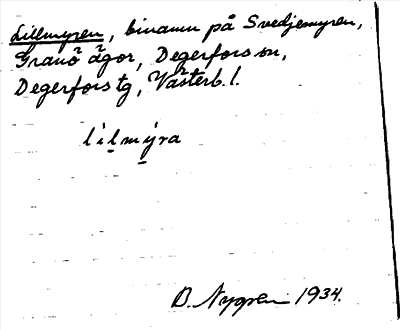 Lillmyren, binamn på Svedjemyren,
Granö ägor, Degerfors sn,
Degerfors tg, Västerb. l.
lilmýra
B. Nygren 1934.